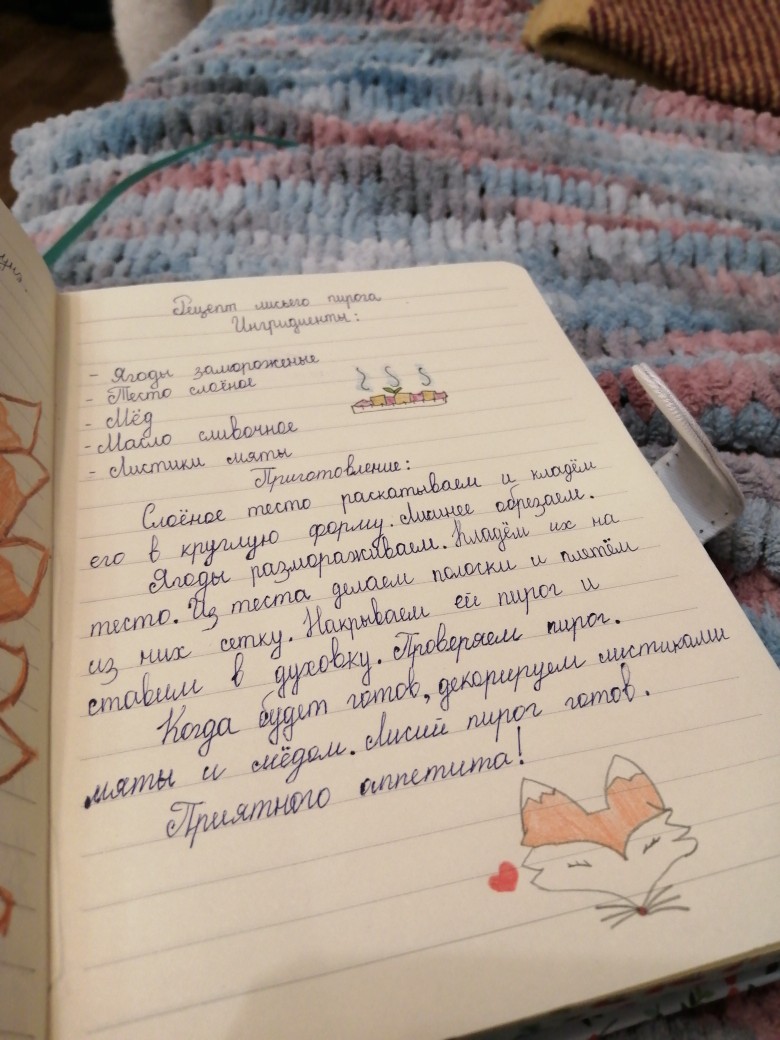 Рецепт лисьего пирога
Ингридиенты:
- Ягоды замороженые
- Тесто слоёное
- Мёд
- Масло сливочное
- Листики мяты
Приготовление:
Слоёное тесто раскатываем и кладём
его в круглую форму. Лишнее обрезаем.
Ягоды размораживаем. Кладём их на
тесто. Из теста делаем полоски и плетём
из них сетку. Накрываем ей пирог и
ставим в духовку. Проверяем пирог.
Когда будет готов, декорируем листиками
мяты и мёдом. Лисий пирог готов.
Приятного аппетита!